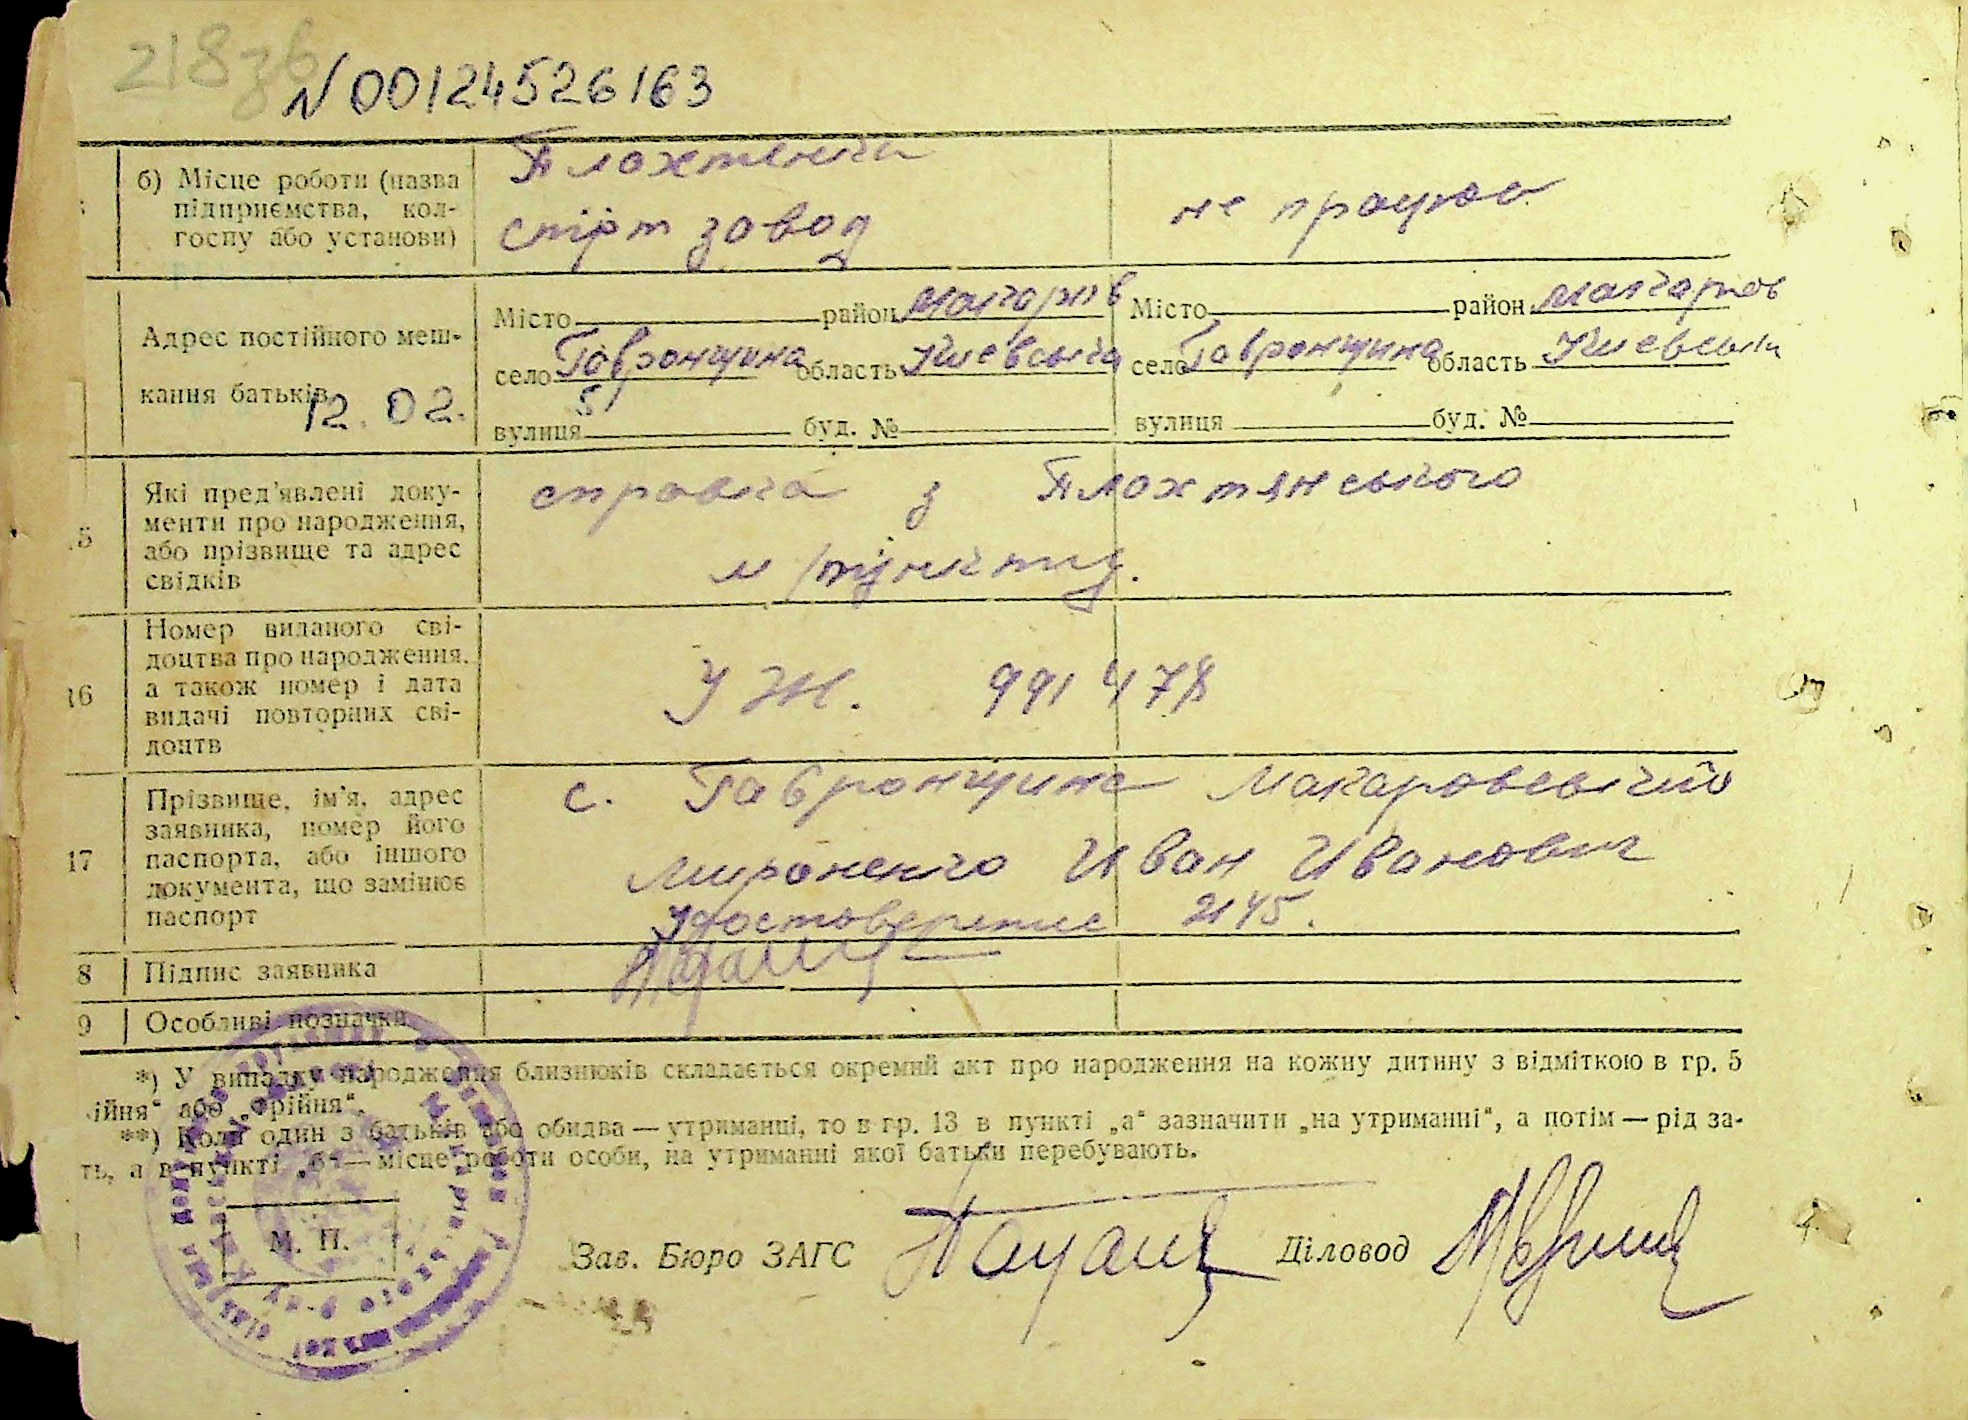 218зв
N00124526163
б) Місце роботи (назва
підприємства, кол-
госпу або установи)
Плахтянка
спірт завод
не працює
Адрес постійного меш-
кання батьків
12.02.
Місто район Макарів
село Гавронщина область Киевська
вулиця буд. №
Місто район Макаров
село Гавронщина область Киевськ
вулиця буд. №
5
Які пред'явлені доку-
менти про народження,
або прізвище та адрес
свідків
справка з Плахтянського
м/пункту.
16
Номер виданого сві-
доцтва про народження,
а також номер і дата
видачі повторних сві-
доцтв
УЖ. 991478
17
Прізвище, ім'я, адрес
заявника, номер його
паспорта, або іншого
документа, що замінює
паспорт
с. Гавронщина Макаровський
Мироненко Иван Иванович
2145.
8 Підпис заявника
9 Особливі позначки
*) У випадку народження близнюків складається окремий акт про народження на кожну дитину з відміткою в гр. 5
ійня“ або „трійня“.
**) Коли один з батьків або обидва — утриманці, то в гр. 13 в пункті „а“ зазначити „на утриманні“, а потім — рід за-
ть, а в пункті „б“ — місце роботи особи, на утриманні якої батьки перебувають.
М. П.
Зав. Бюро ЗАГС Діловод